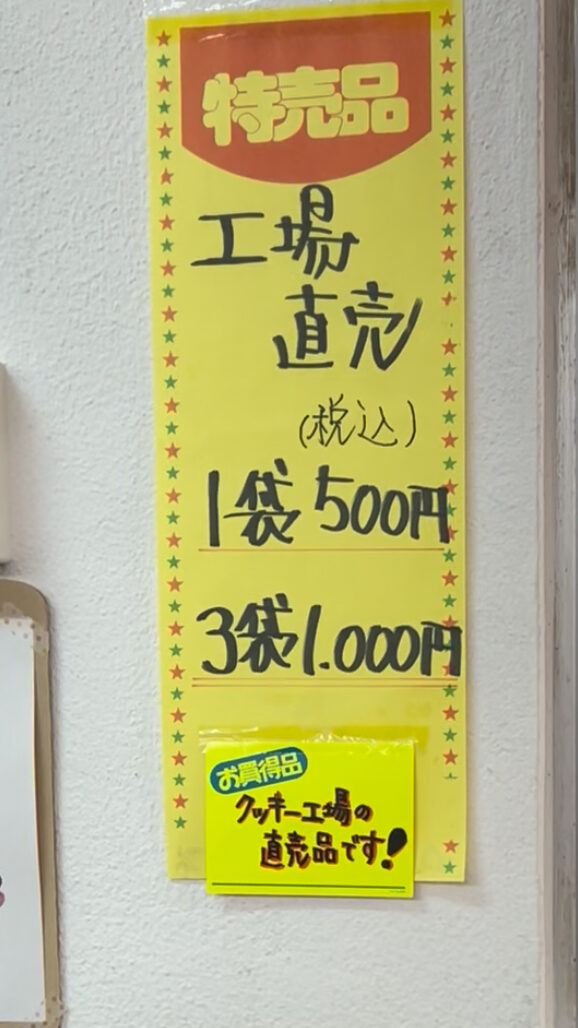 特売品
工場
直売
(税込)
1袋500円
3袋1.000円
お買得品
クッキー工場の
直売品です!